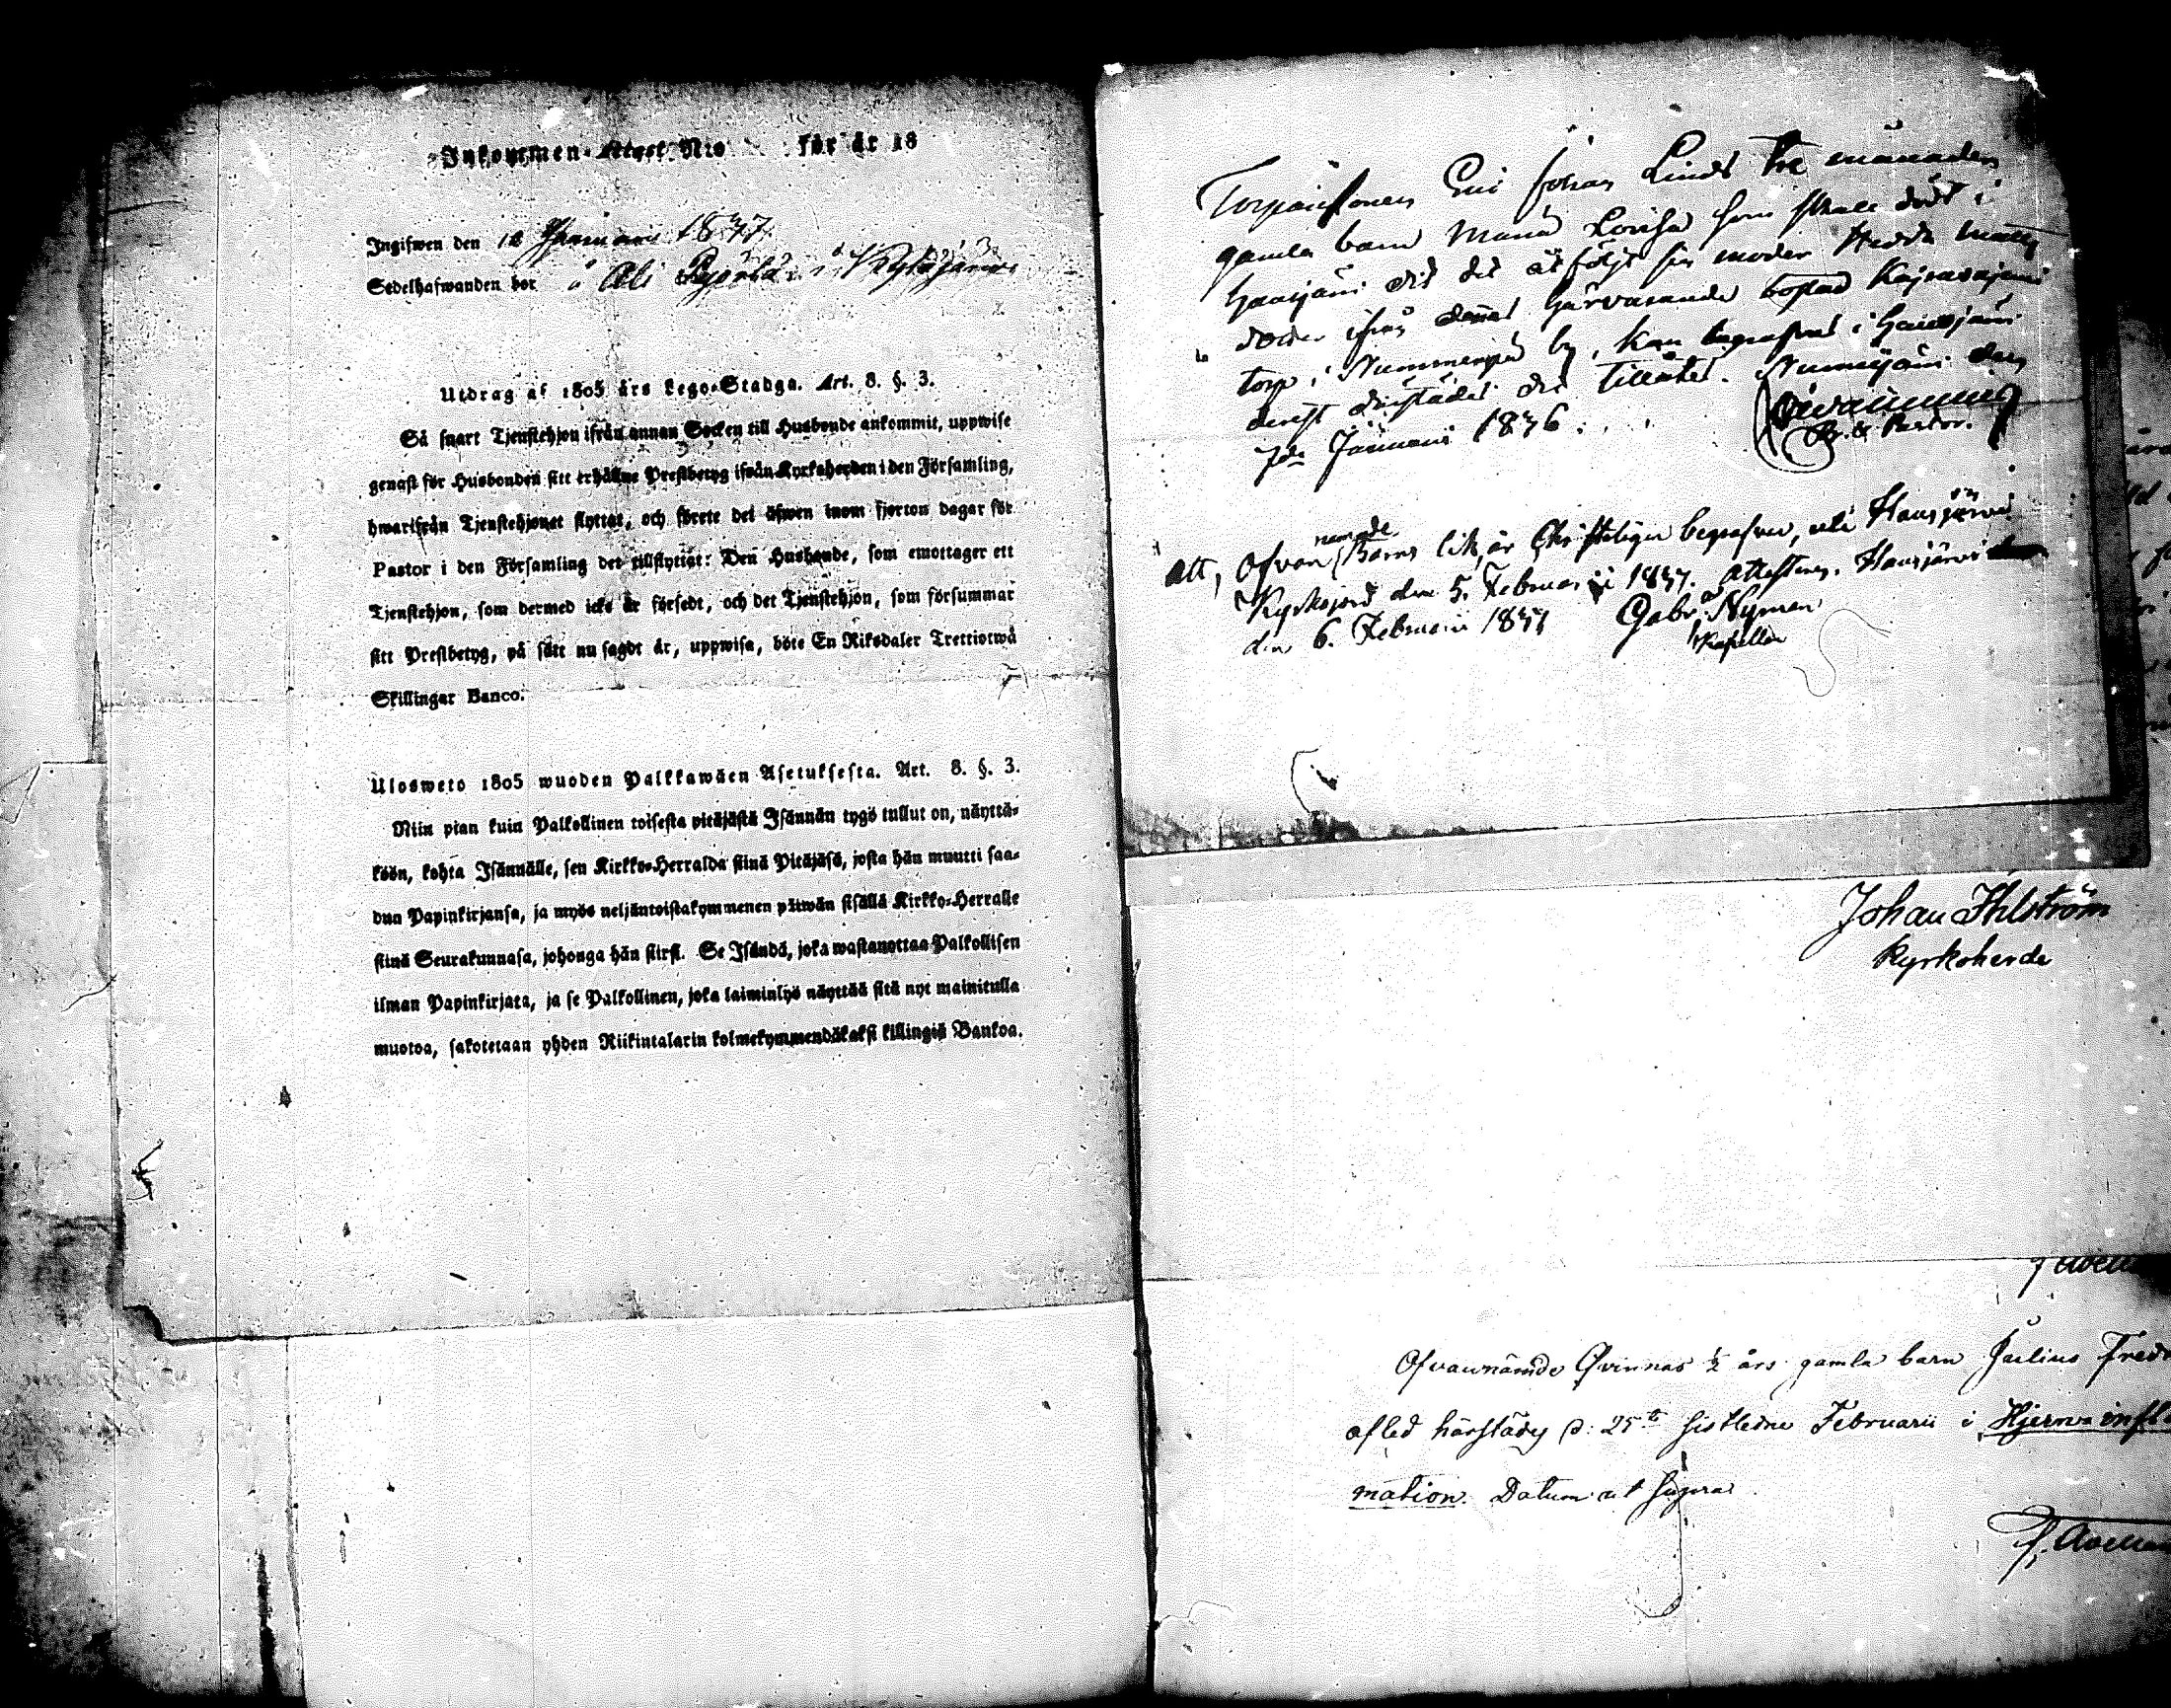 Inkommen-Attest N:o för år 18
Ingifwen den 18 Januari 1847
Sedelhafwanden bor å Ali i
Utdrag af 1805 års Lego-Stadga. Art. 8. §. 3.
Så snart Tjenstehjon ifrån annan Socken till Husbonde ankommit, uppwise
genast för Husbonden sitt erhållne Prestbetyg ifrån Kyrkoherden i den Församling,
hwarifrån Tjenstehjonet flyttat, och förete det äfwen inom fjorton dagar för
Pastor i den Församling det tillflyttat: Den Husbonde, som emottager ett
Tjenstehjon, som dermed icke är försedt, och det Tjenstehjon, som försummar
sitt Prestbetyg, på sätt nu sagdt är, uppwisa, böte En Riksdaler Trettiotwå
Skillingar Banco.
Ulosweto 1805 wuoden Palkkawäen Asetuksesta. Art. 8. §. 3.
Niin pian kuin Palkollinen toisesta pitäjästä Isännän tygö tullut on, näyttä-
köön, kohta Isännälle, sen Kirkko-Herralda siinä Pitäjäsä, josta hän muutti saa-
dun Papinkirjansa, ja myös neljäntoistakymmenen päiwän sisällä Kirkko-Herralle
siinä Seurakunnasa, johonga hän siirsi. Se Isändä, joka wastanottaa Palkollisen
ilman Papinkirjata, ja se Palkollinen, joka laiminlyö näyttää sitä nyt mainitulla
muotoa, sakotetaan yhden Riikintalarin kolmekymmendäkaksi killingiä Bankoa.
Johan Linds tre månader
gamla barn Maria Lovisa som skall dödt i
Hausjärvi dit det åtföljt sin moder Hedda
ifrån dennas härvarande bostad
torp i by, kan begrafvas i Hausjärvi
tillåtes. Nurmijärvi den
7de Januari 1846
& Pastor.
Att, Ofvan nämnde Barns lik, är Christeligen begrafven, uti Hausjärvi
Kyrkojord den 5. Februarii 1847. Attesteras. Hausjärvi
den 6. Februarii 1847 Gabr. Nyman
Kapellan
Johan Ihlström
Kyrkoherde
Ofvannämde Qvinnas ½ års gamla barn Julius Fredr
afled härstädes d: 25te sistledne Februarii i Hjernainfla
mation. Datum ut supra